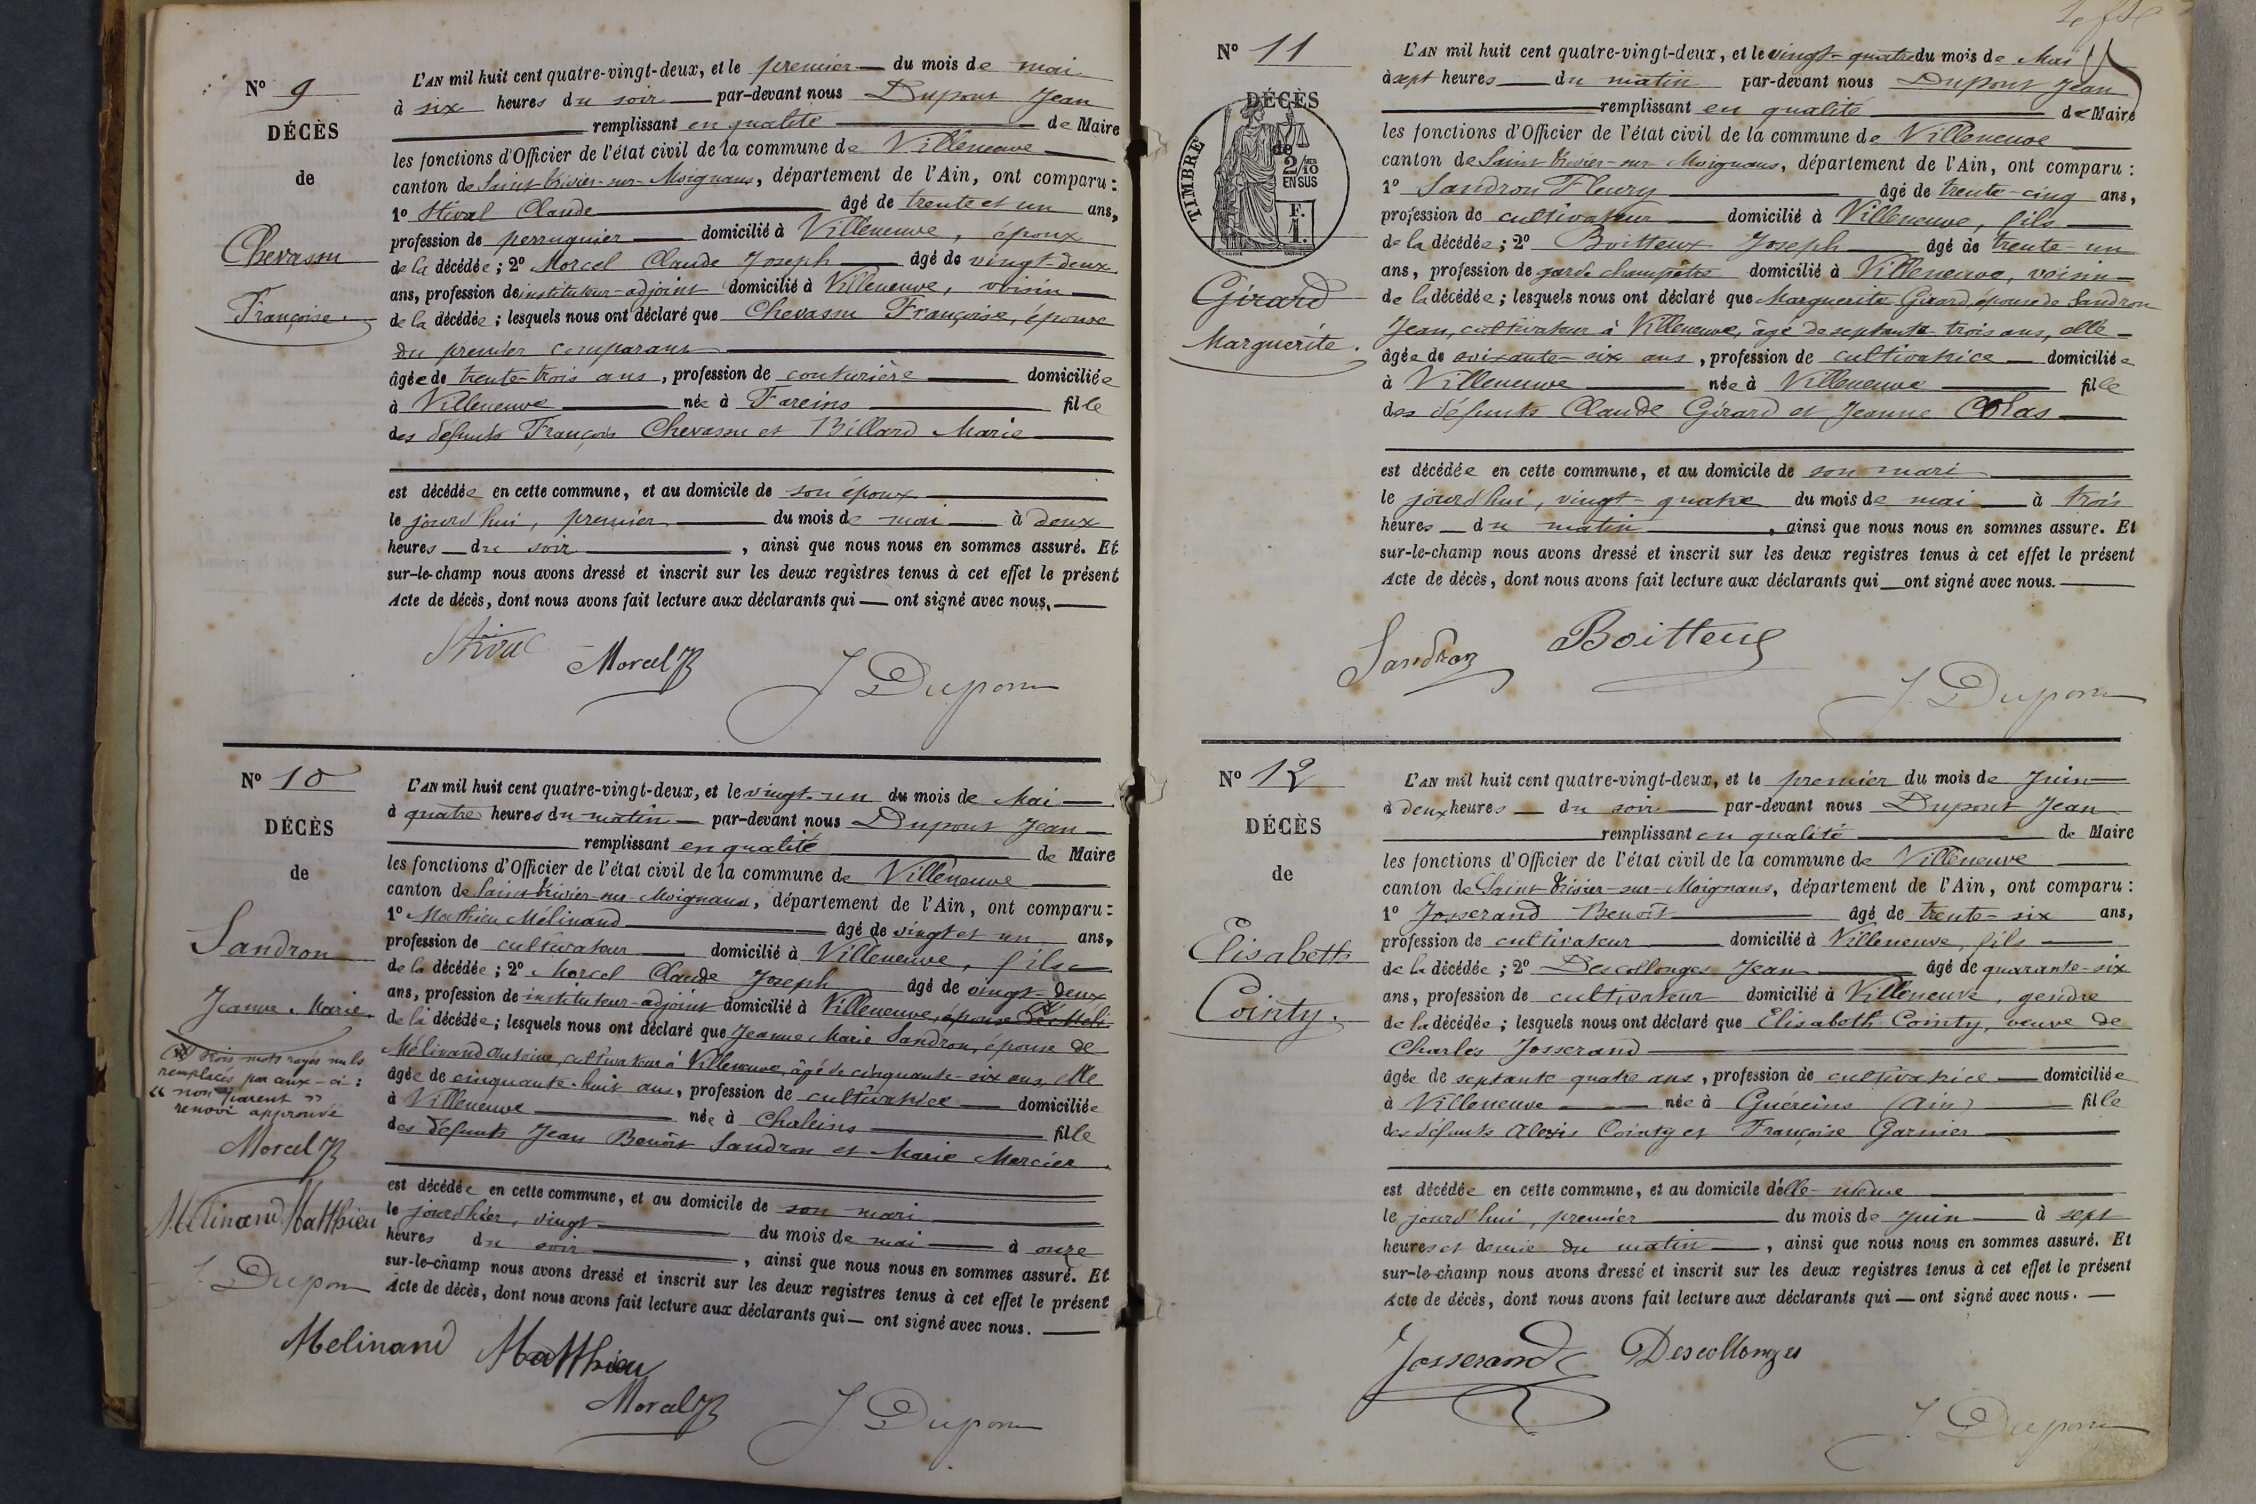 N° 9
DÉCÈS
de
Chevassu
Françoise.
L'AN mil huit cent quatre-vingt-deux, et le premier du mois de mai
à six heures du soir par-devant nous Dupont Jean
remplissant en qualité de Maire
les fonctions d'Officier de l'état civil de la commune de Villeneuve
canton de Saint-Trivier-sur-Moignans, département de l'Ain, ont comparu :
1° Stival Claude âgé de trente et un ans,
profession de perruquier domicilié à Villeneuve, époux
de la décédée ; 2° Morcel Claude Joseph âgé de vingt-deux
ans, profession de instituteur-adjoint domicilié à Villeneuve, voisin
de la décédée ; lesquels nous ont déclaré que Chevassu Françoise, épouse
du premier comparant
âgée de trente-trois ans, profession de couturière domiciliée
à Villeneuve née à Fareins fille
des défunts François Chevassu et Billard Marie
est décédée en cette commune, et au domicile de son époux
le jourd'hui, premier du mois de mai à deux
heures du soir, ainsi que nous nous en sommes assuré. Et
sur-le-champ nous avons dressé et inscrit sur les deux registres tenus à cet effet le présent
Acte de décès, dont nous avons fait lecture aux déclarants qui ont signé avec nous.
Stival Morcel J Dupont
N° 10
DÉCÈS
de
Sandron
Jeanne Marie.
trois mots rayés nuls
remplacés par ceux-ci :
"non parent"
renvoi approuvé
Morcel
Melinand Matthieu
J. Dupont
L'AN mil huit cent quatre-vingt-deux, et le vingt-un du mois de Mai
à quatre heures du matin par-devant nous Dupont Jean
remplissant en qualité de Maire
les fonctions d'Officier de l'état civil de la commune de Villeneuve
canton de Saint-Trivier-sur-Moignans, département de l'Ain, ont comparu :
1° Mathieu Mélinand âgé de vingt et un ans,
profession de cultivateur domicilié à Villeneuve, fils
de la décédée ; 2° Morcel Claude Joseph âgé de vingt-deux
ans, profession de instituteur-adjoint domicilié à Villeneuve, épouse de Méli
de la décédée ; lesquels nous ont déclaré que Jeanne Marie Sandron, épouse de
Mélinand Antoine, cultivateur à Villeneuve, âgé de cinquante-six ans, elle
âgée de cinquante-huit ans, profession de cultivatrice domiciliée
à Villeneuve née à Chaleins fille
des défunts Jean Benoît Sandron et Marie Mercier
est décédée en cette commune, et au domicile de son mari
le jourd'hier, vingt du mois de mai à onze
heures du soir, ainsi que nous nous en sommes assuré. Et
sur-le-champ nous avons dressé et inscrit sur les deux registres tenus à cet effet le présent
Acte de décès, dont nous avons fait lecture aux déclarants qui ont signé avec nous.
Melinand Matthieu
Morcel J Dupont
N° 11
DÉCÈS
de
TIMBRE
2/10
EN SUS
F.
1.
Girard
Marguerite.
L'AN mil huit cent quatre-vingt-deux, et le vingt-quatre du mois de Mai
à sept heures du matin par-devant nous Dupont Jean
remplissant en qualité de Maire
les fonctions d'Officier de l'état civil de la commune de Villeneuve
canton de Saint-Trivier-sur-Moignans, département de l'Ain, ont comparu :
1° Sandron Fleury âgé de trente-cinq ans,
profession de cultivateur domicilié à Villeneuve, fils
de la décédée ; 2° Boitteux Joseph âgé de trente-un
ans, profession de garde champêtre domicilié à Villeneuve, voisin
de la décédée ; lesquels nous ont déclaré que Marguerite Girard, épouse de Sandron
Jean, cultivateur à Villeneuve, âgé de septante-trois ans, elle
âgée de soixante-six ans, profession de cultivatrice domiciliée
à Villeneuve née à Villeneuve fille
des défunts Claude Girard et Jeanne Colas
est décédée en cette commune, et au domicile de son mari
le jourd'hui, vingt-quatre du mois de mai à trois
heures du matin, ainsi que nous nous en sommes assure. Et
sur-le-champ nous avons dressé et inscrit sur les deux registres tenus à cet effet le présent
Acte de décès, dont nous avons fait lecture aux déclarants qui ont signé avec nous.
Sandron Boitteux
J. Dupont
N° 12
DÉCÈS
de
Elisabeth
Cointy.
L'AN mil huit cent quatre-vingt-deux, et le premier du mois de Juin
à deux heures du soir par-devant nous Dupont Jean
remplissant en qualité de Maire
les fonctions d'Officier de l'état civil de la commune de Villeneuve
canton de Saint-Trivier-sur-Moignans, département de l'Ain, ont comparu :
1° Josserand Benoît âgé de trente-six ans,
profession de cultivateur domicilié à Villeneuve, fils
de la décédée ; 2° Descollonges Jean âgé de quarante-six
ans, profession de cultivateur domicilié à Villeneuve, gendre
de la décédée ; lesquels nous ont déclaré que Elisabeth Cointy, veuve de
Charles Josserand
âgée de septante quatre ans, profession de cultivatrice domiciliée
à Villeneuve née à Guéreins (Ain) fille
des défunts Alexis Cointy et Françoise Garnier
est décédée en cette commune, et au domicile d'elle-même
le jourd'hui, premier du mois de juin à sept
heures et demie du matin, ainsi que nous nous en sommes assuré. Et
sur-le-champ nous avons dressé et inscrit sur les deux registres tenus à cet effet le présent
Acte de décès, dont nous avons fait lecture aux déclarants qui ont signé avec nous.
Josserand Descollonges
J. Dupont